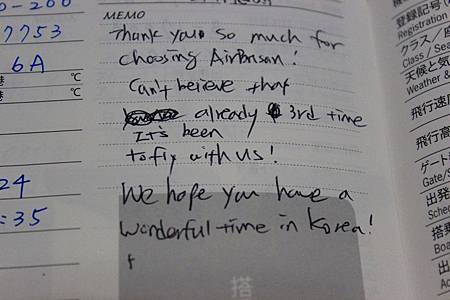 0-200
7753
6A
港 ℃
港 ℃
24
:35
MEMO
Thank you so much for
choosing AirBusan!
Can't believe that
It's been already 3rd time
to fly with us!
We hope you have a
wonderful time in Korea!
搭
登録記号
Registration
クラス／座
Class / Sea
天候と気
Weather &
飛行速度
飛行高
ゲート
Gate/S
出発
Sched
搭乗
Boa
出
Ac